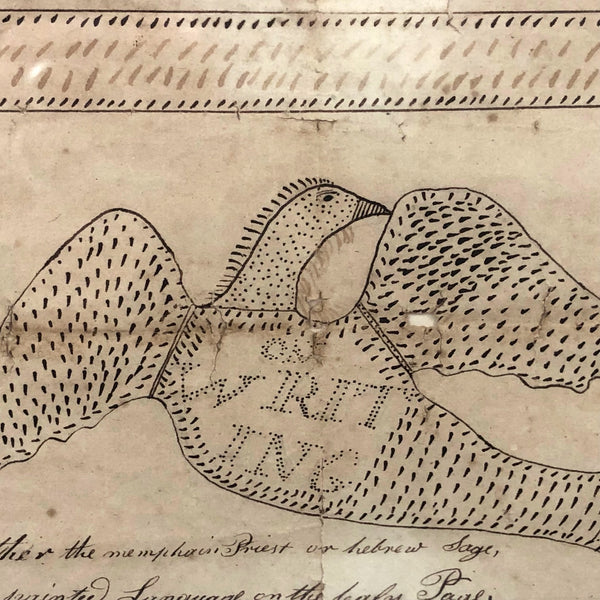 WRIT
ING
ther the memphain Priest or hebrew Sage,
painted Language on the leafy Page,